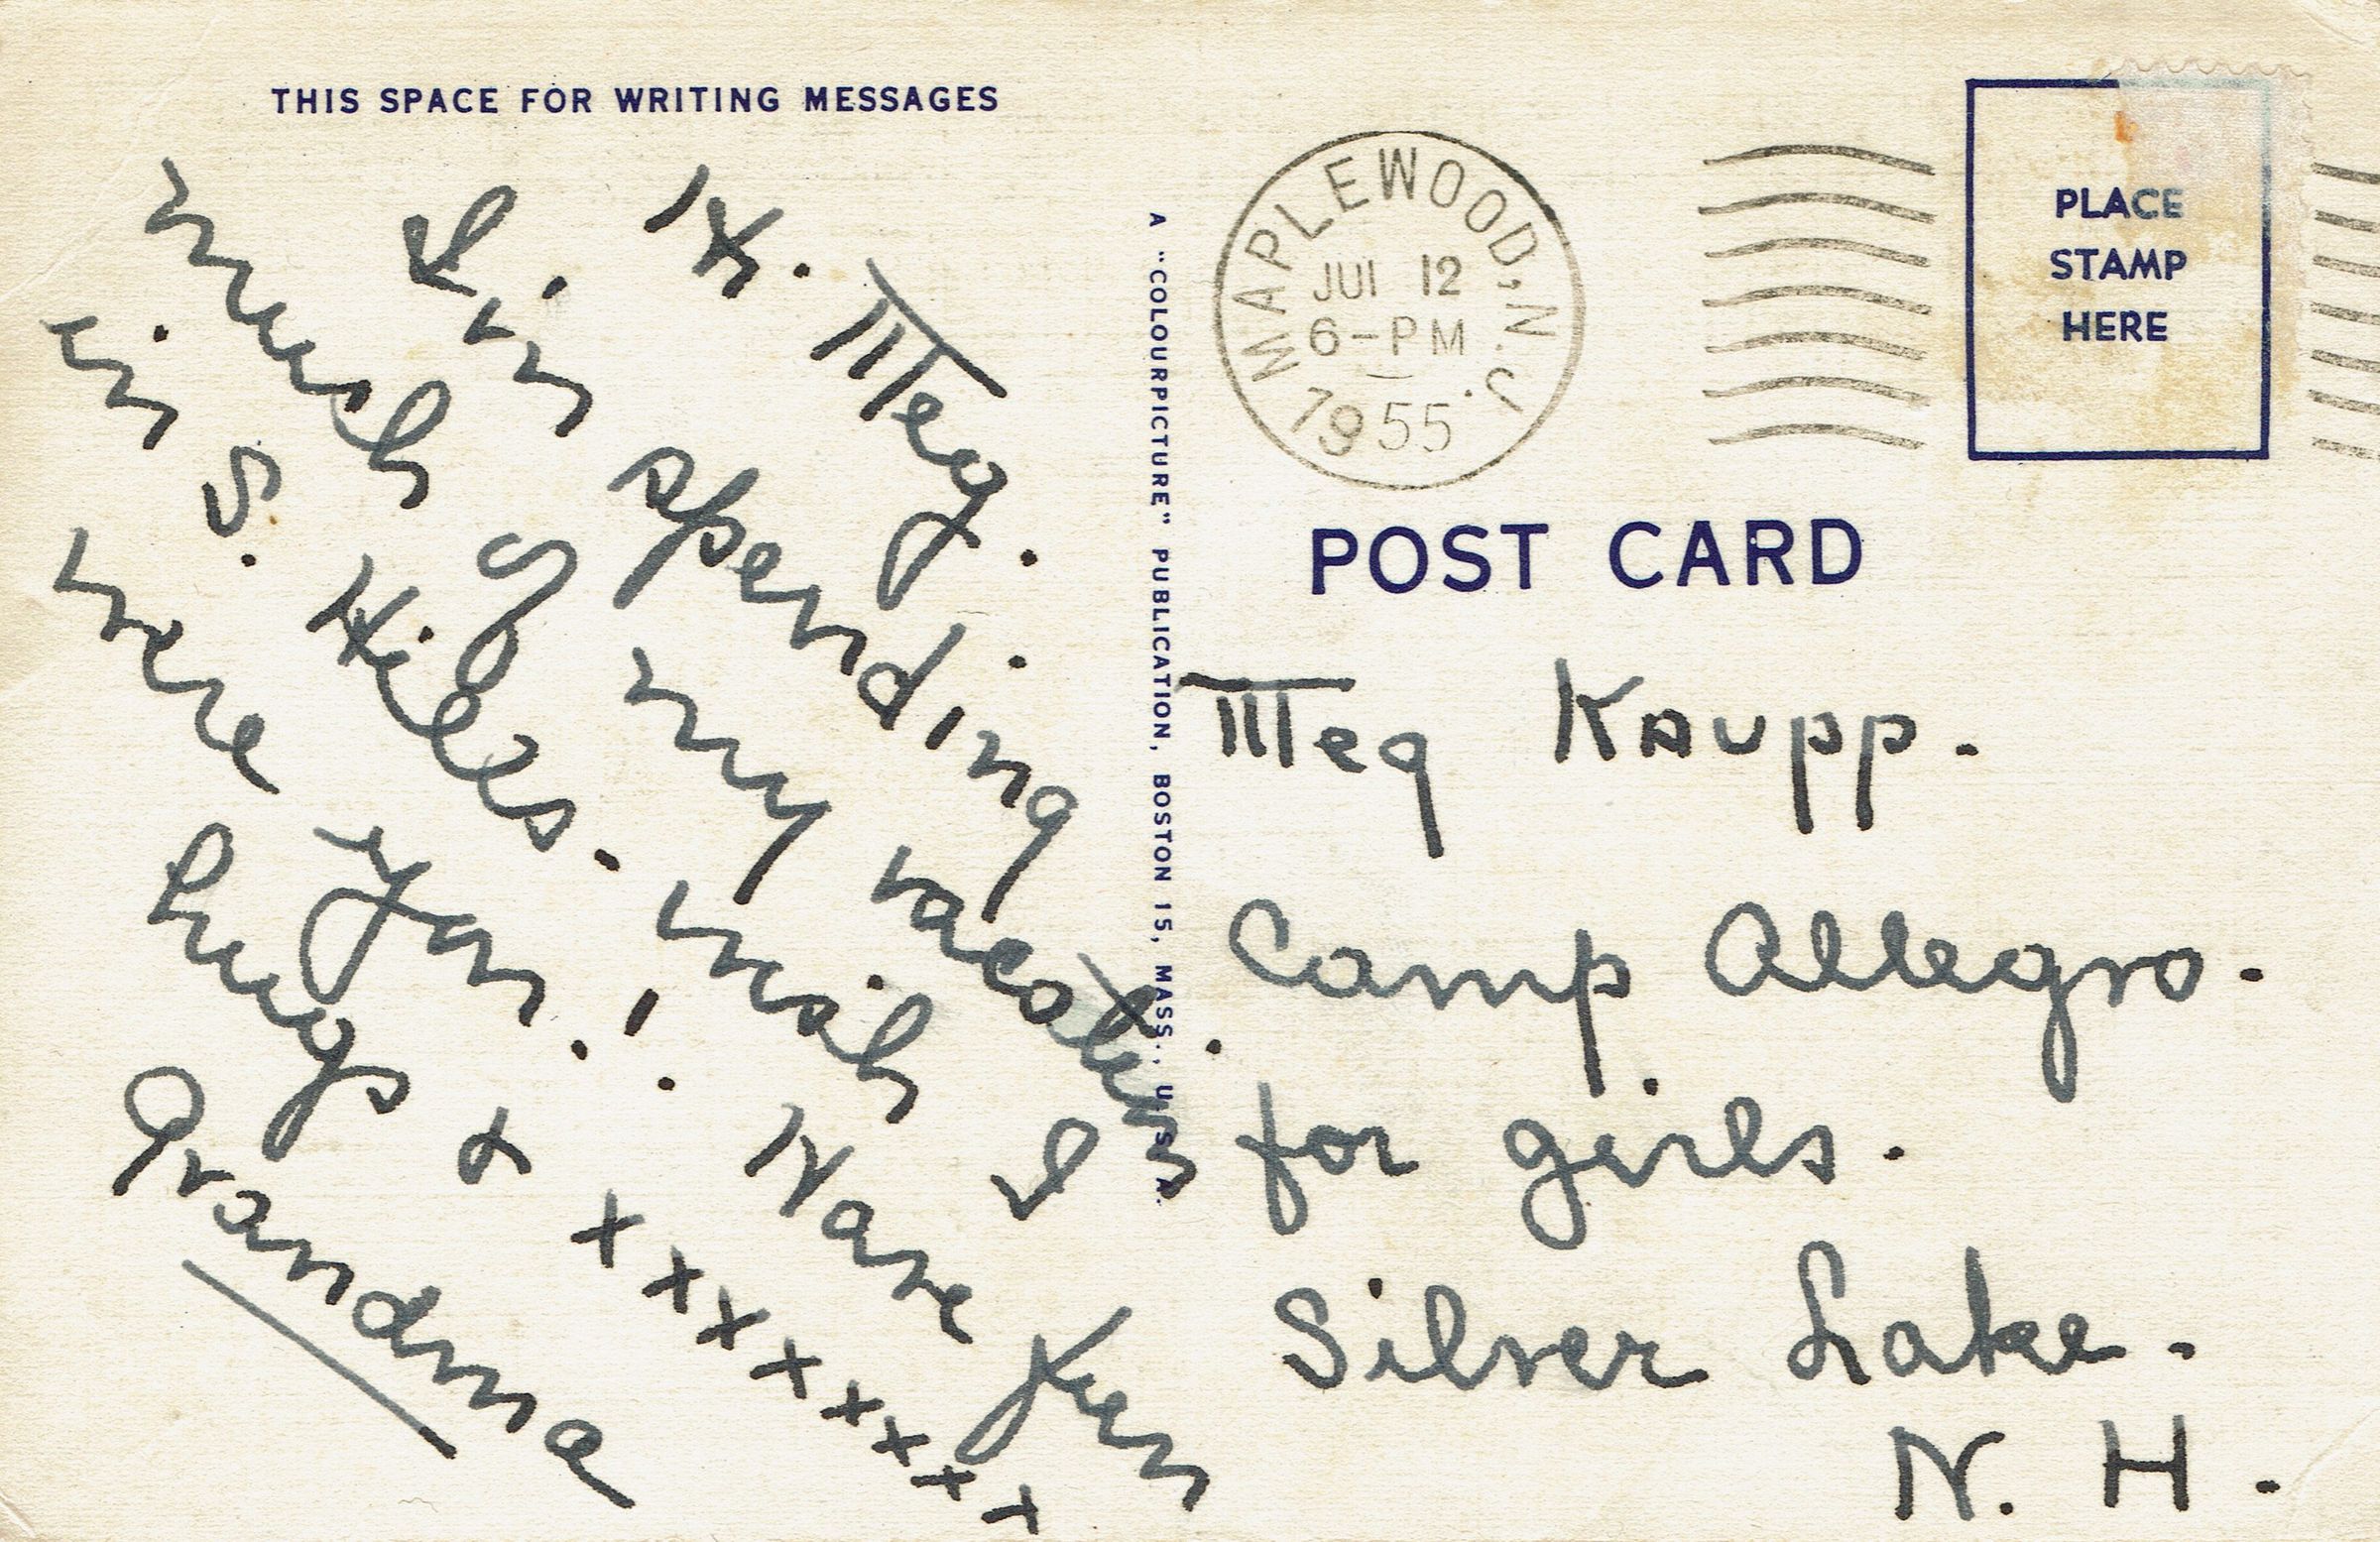 THIS SPACE FOR WRITING MESSAGES
Hi Meg.
I'm spending
much of my vacation
in S. Hills. wish I
were you! Have fun
hugs & x x x x x x x x
Grandma
A "COLOURPICTURE" PUBLICATION, BOSTON 15, MASS., U.S.A.
MAPLEWOOD, N.J.
JUL 12
6-PM
1955
PLACE
STAMP
HERE
POST CARD
Meg Kaupp.
Camp Allegro.
for girls.
Silver Lake.
N. H.